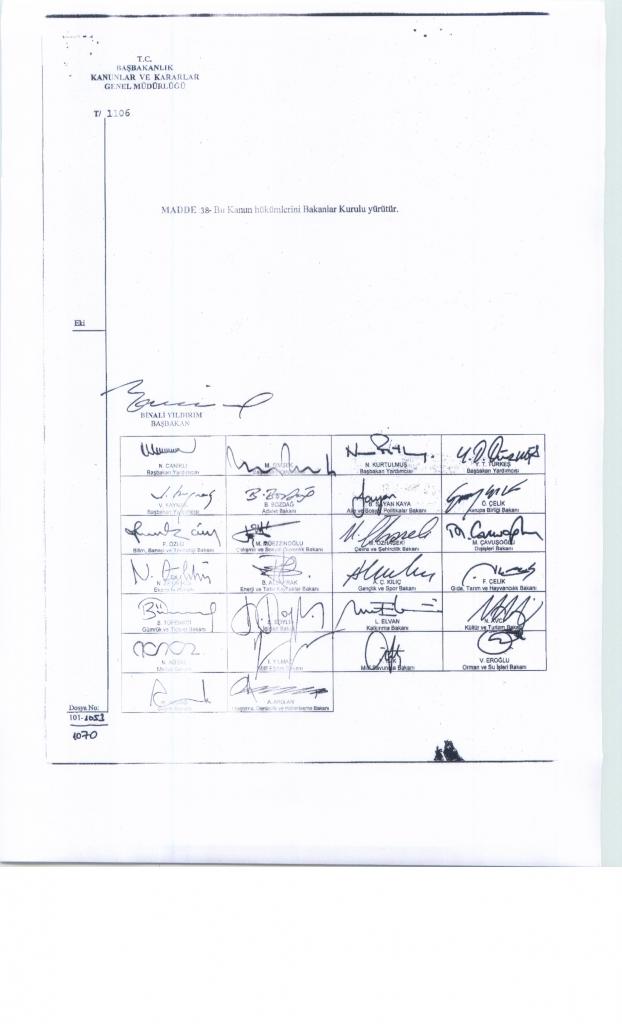 T.C.
BAŞBAKANLIK
KANUNLAR VE KARARLAR
GENEL MÜDÜRLÜĞÜ
T/ 1106
MADDE 38- Bu Kanun hükümlerini Bakanlar Kurulu yürütür.
Eki
BİNALİ YILDIRIM
BAŞBAKAN
N. CANİKLİ
Başbakan Yardımcısı
N. KURTULMUŞ
Başbakan Yardımcısı
Y. T. TÜRKEŞ
Başbakan Yardımcısı
V. KAYNAK
Başbakan Yardımcısı
B. BOZDAĞ
Adalet Bakanı
SAYAN KAYA
Aile ve Sosyal Politikalar Bakanı
Ö. ÇELİK
Avrupa Birliği Bakanı
F. ÖZLÜ
Bilim, Sanayi ve Teknoloji Bakanı
M. MÜEZZİNOĞLU
Çalışma ve Sosyal Güvenlik Bakanı
ÖZHASEKİ
Çevre ve Şehircilik Bakanı
M. ÇAVUŞOĞLU
Dışişleri Bakanı
Ekonomi Bakanı
B. ALBAYRAK
Enerji ve Tabii Kaynaklar Bakanı
A. Ç. KILIÇ
Gençlik ve Spor Bakanı
F. ÇELİK
Gıda, Tarım ve Hayvancılık Bakanı
B. TÜFENKCİ
Gümrük ve Ticaret Bakanı
L. ELVAN
Kalkınma Bakanı
N. AVCI
Kültür ve Turizm Bakanı
N. AĞBAL
Maliye Bakanı
İ. YILMAZ
Milli Eğitim Bakanı
Milli Savunma Bakanı
V. EROĞLU
Orman ve Su İşleri Bakanı
A. ARSLAN
Ulaştırma, Denizcilik ve Haberleşme Bakanı
Dosya No:
101-1053
1070